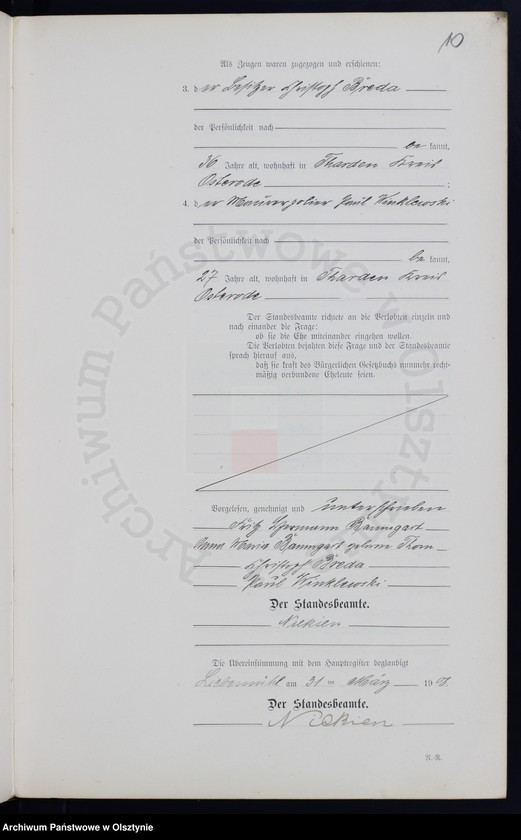 10
Als Zeugen waren zugezogen und erschienen:
3. der Besitzer Christoph Breda
der Persönlichkeit nach
be kannt,
36 Jahre alt, wohnhaft in Tharden Kreis
Osterode ;
4. der Maurerpolier Paul Winklewski
der Persönlichkeit nach
be kannt,
27 Jahre alt, wohnhaft in Tharden Kreis
Osterode
Der Standesbeamte richtete an die Verlobten einzeln und
nach einander die Frage:
ob sie die Ehe miteinander eingehen wollen.
Die Verlobten bejahten diese Frage und der Standesbeamte
sprach hierauf aus,
daß sie kraft des Bürgerlichen Gesetzbuchs nunmehr recht-
mäßig verbundene Eheleute seien.
Vorgelesen, genehmigt und unterschrieben
Fritz Hermann Baumgart
Maria Baumgart geborne Thom
Christoph Breda
Paul Winklewski
Der Standesbeamte.
Die Übereinstimmung mit dem Hauptregister beglaubigt
Liebemühl am 31 ten März 19
Der Standesbeamte.
N.-R.
Archiwum Państwowe w Olsztynie
Archiwum Państwowe w Olsztynie